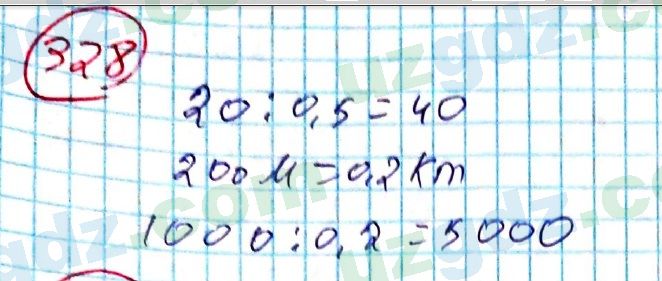 328
20 : 0,5 = 40
200 м = 0,2 Km
1000 : 0,2 = 5000